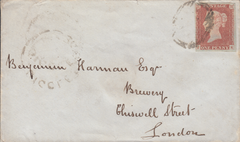 Benjamin Harman Esqr
Brewery
Chiswell Street
London